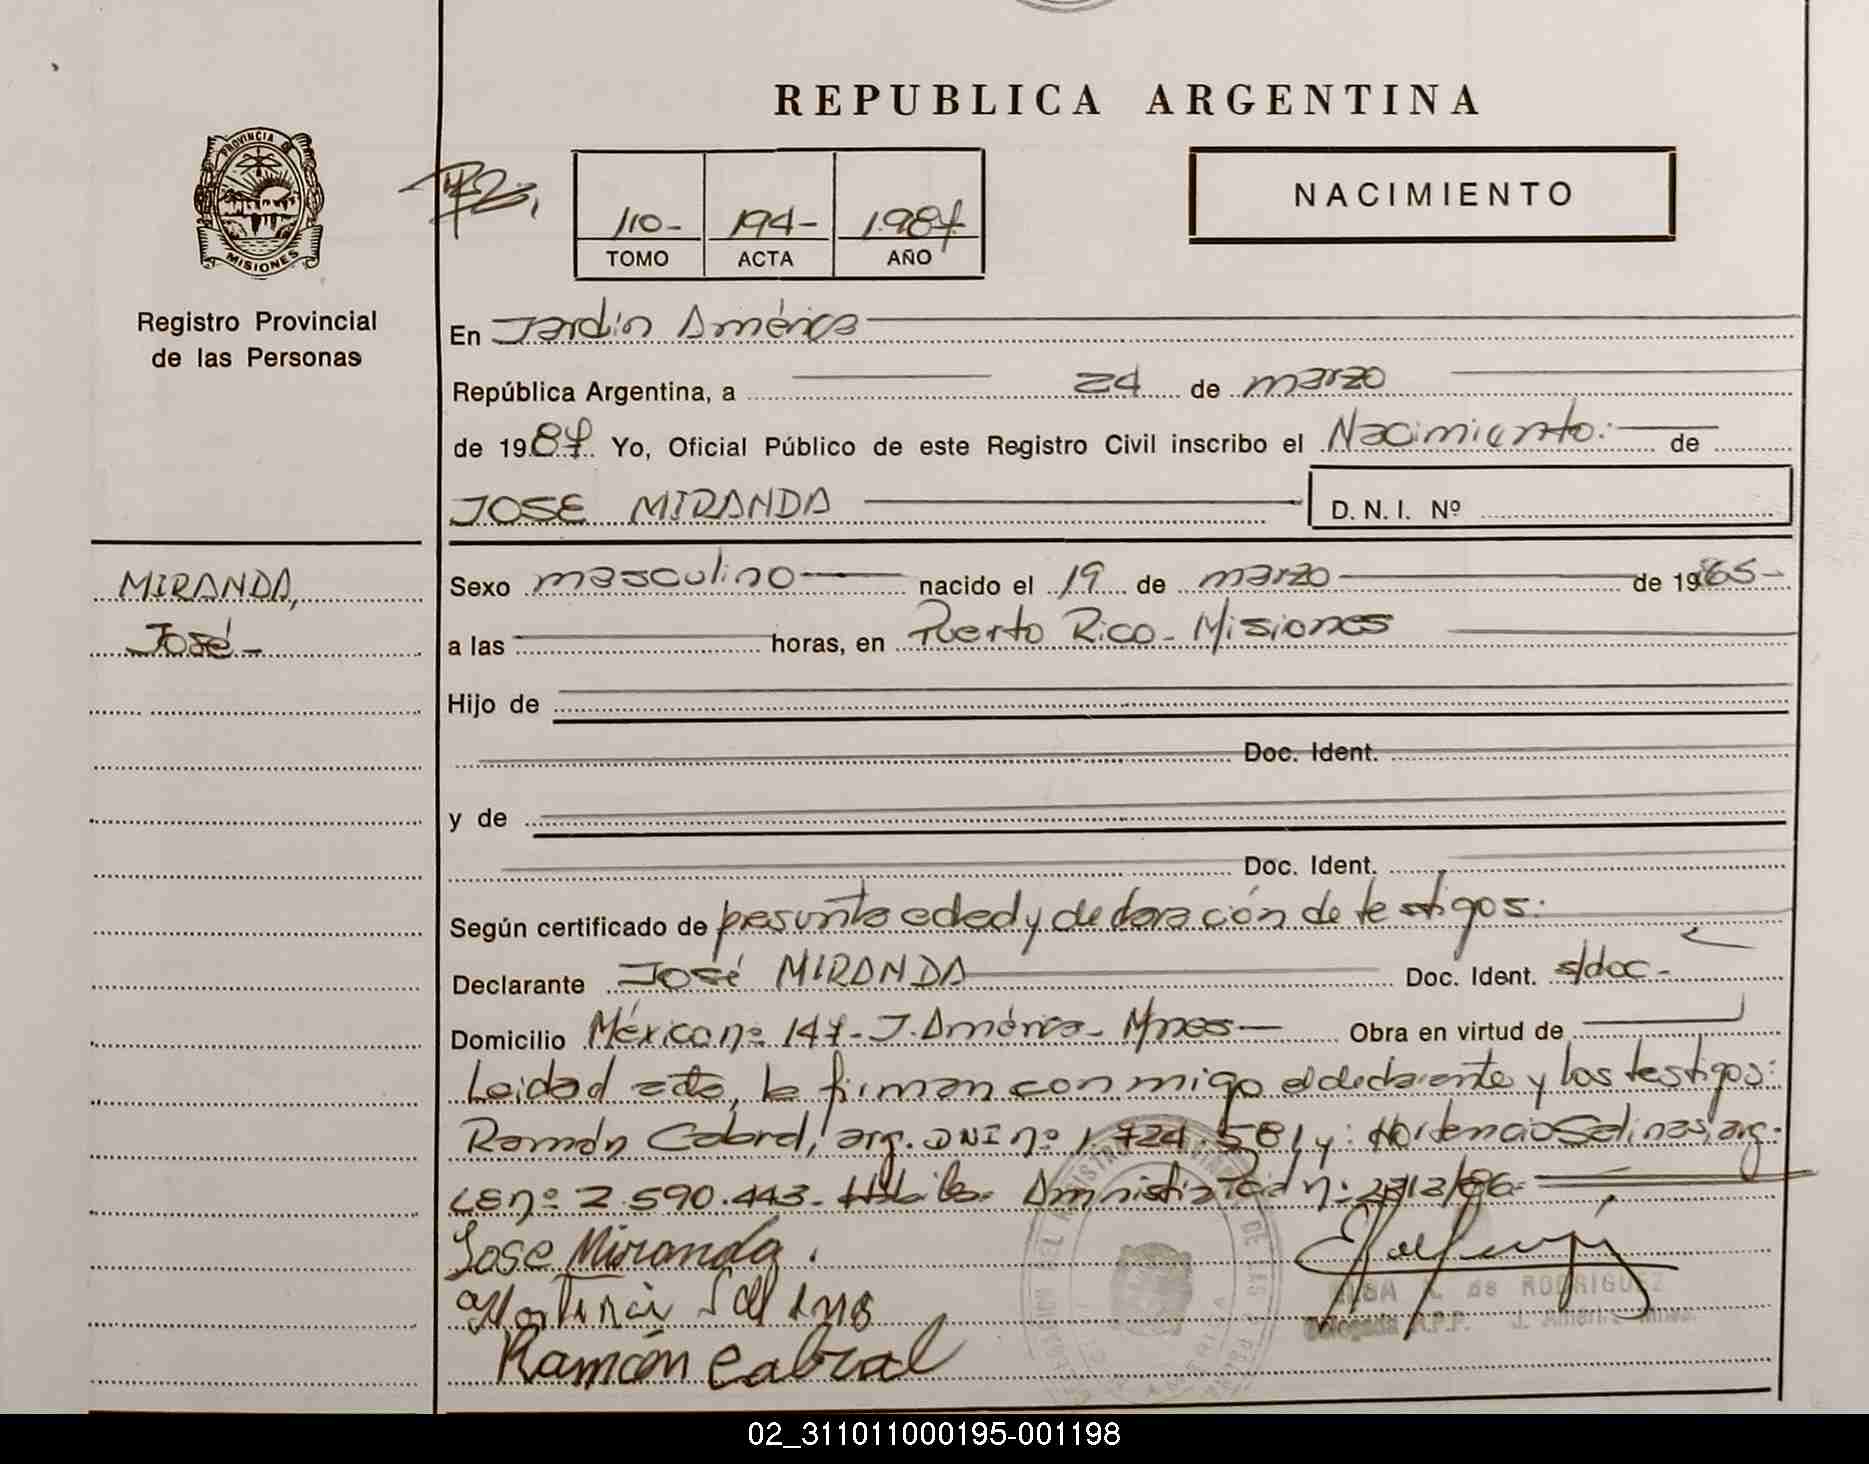 REPUBLICA ARGENTINA
PROVINCIA D
MISIONES
Registro Provincial
de las Personas
110- 194- 1.987
TOMO ACTA AÑO
NACIMIENTO
En Jardín América
República Argentina, a 24 de marzo
de 1987 Yo, Oficial Público de este Registro Civil inscribo el Nacimiento: de
JOSE MIRANDA D. N. I. Nº
MIRANDA,
José-
Sexo masculino nacido el 19 de marzo de 1965-
a las horas, en Puerto Rico - Misiones
Hijo de
Doc. Ident.
y de
Doc. Ident.
Según certificado de presunta edad y declaración de testigos:
Declarante José MIRANDA Doc. Ident. s/doc-
Domicilio México nº 147 - J. América - Mnes- Obra en virtud de
Leidad acta, la firman conmigo el declarante y los testigos:
Ramón Cabral, arg. DNI nº 1.724.581 y: Hortencio Salinas, arg.
LE nº 2.590.443-
Jose Miranda.
Ramón Cabral
de RODRIGUEZ
02_311011000195-001198